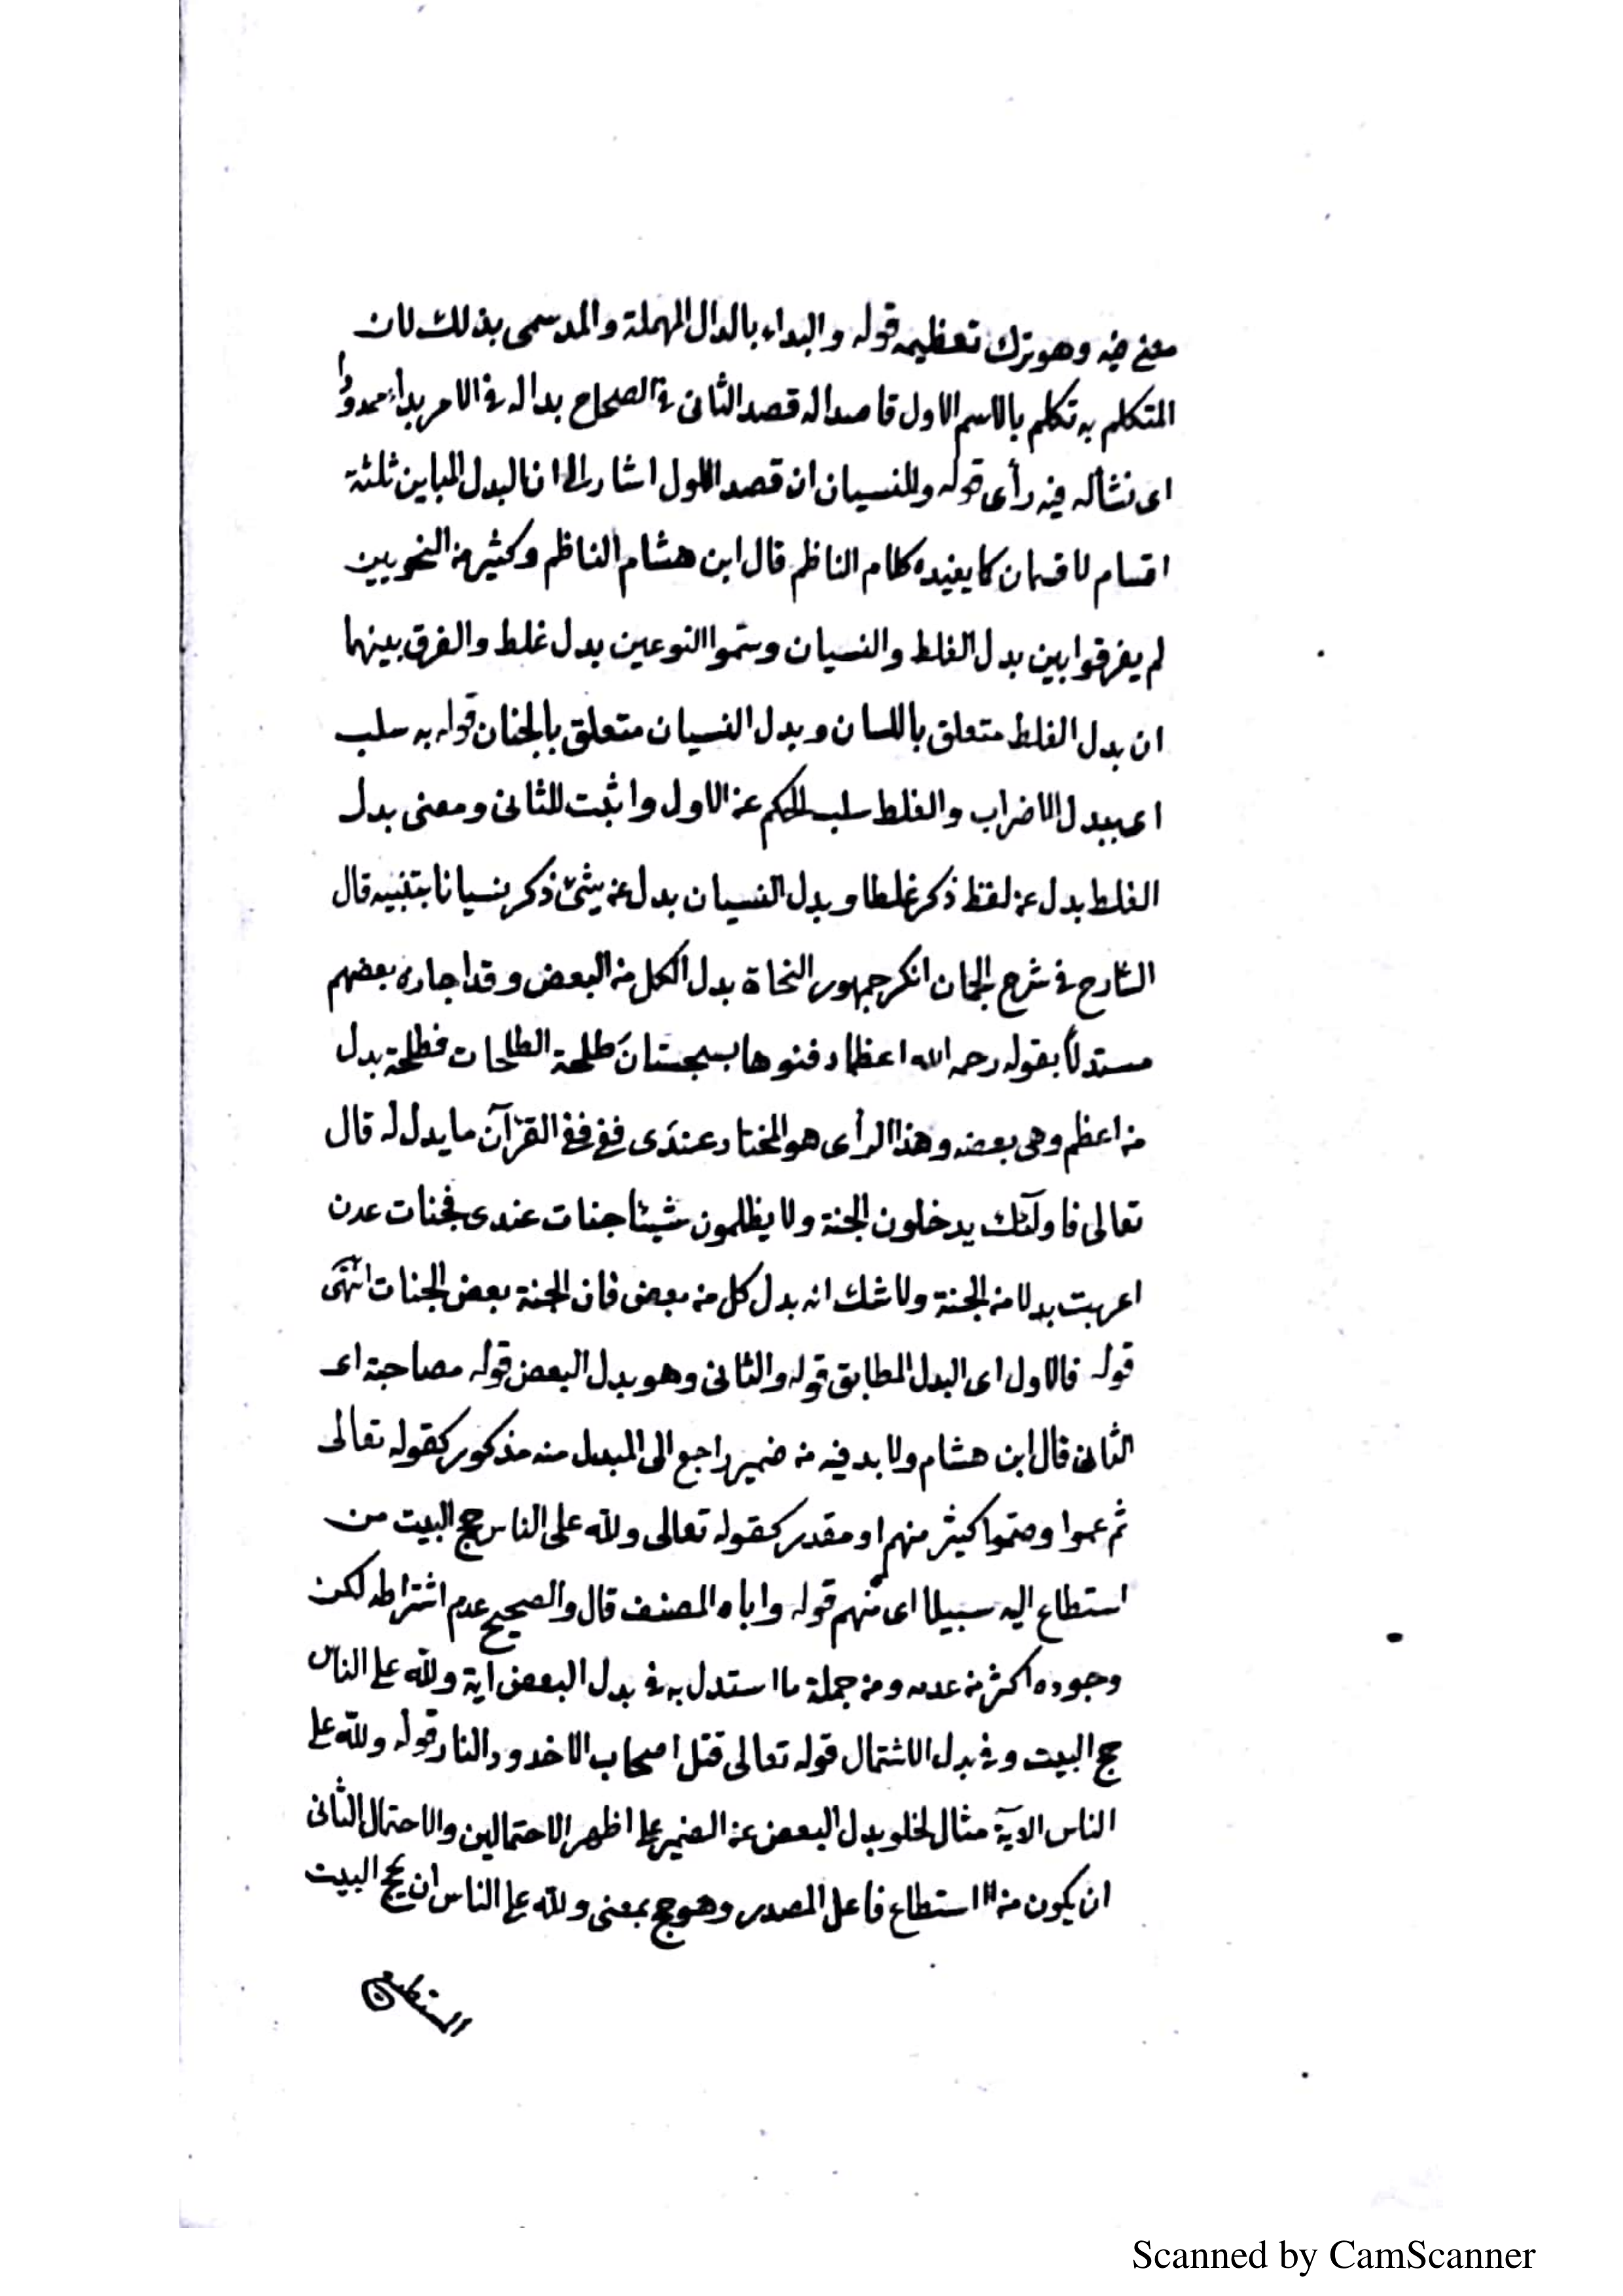 معنى فيه وهو ترك تعظيمه قوله والبداء بالدال المهملة والمد سمى بذلك لان
المتكلم به تكلم بالاسم الاول قاصدا له قصد الثانى فى الصحاح بدا له فى الامر بداء ممدودا
اى نشأ له فيه رأى قوله والنسيان ان قصد الاول اشار الى ان البدل المباين ثلثة
اقسام لا قسمان كما يفيده كلام الناظم قال ابن هشام الناظم وكثير من النحويين
لم يفرقوا بين بدل الغلط والنسيان وسموا النوعين بدل غلط والفرق بينهما
ان بدل الغلط متعلق باللسان وبدل النسيان متعلق بالجنان قوله به سلب
اى ببدل الاضراب والغلط سلب الحكم عن الاول واثبت للثانى ومعنى بدل
الغلط بدل عن لفظ ذكر غلطا وبدل النسيان بدل عن شئ ذكر نسيانا تنبيه قال
الشارح فى شرح الجمان انكر جمهور النحاة بدل الكل من البعض وقد اجازه بعضهم
مستدلا بقوله رحم الله اعظما دفنوها بسجستان طلحة الطلحات فطلحة بدل
من اعظم وهى بعضه وهذا الرأى هو المختار عندى ففى القرآن ما يدل له قال
تعالى فاولئك يدخلون الجنة ولا يظلمون شيئا جنات عندى فجنات عدن
اعربت بدلا من الجنة ولا شك انه بدل كل من بعض فان الجنة بعض الجنات انتهى
قوله فالاول اى البدل المطابق قوله والثانى وهو بدل البعض قوله مصاحبة اى
الثانى قال ابن هشام ولا بد فيه من ضمير راجع الى المبدل منه مذكور كقوله تعالى
ثم عموا وصموا كثير منهم او مقدر كقوله تعالى ولله على الناس حج البيت من
استطاع اليه سبيلا اى منهم قوله واباه المصنف قال والصحيح عدم اشتراطه لكن
وجوده اكثر من عدمه ومن جملة ما استدل به فى بدل البعض آية ولله على الناس
حج البيت وفى بدل الاشتمال قوله تعالى قتل اصحاب الاخدود النار قوله ولله على
الناس الآية مثال لخلو بدل البعض عن الضمير على اظهر الاحتمالين والاحتمال الثانى
ان يكون من استطاع فاعل المصدر وهو حج بمعنى ولله على الناس ان يحج البيت
المستطيع
Scanned by CamScanner